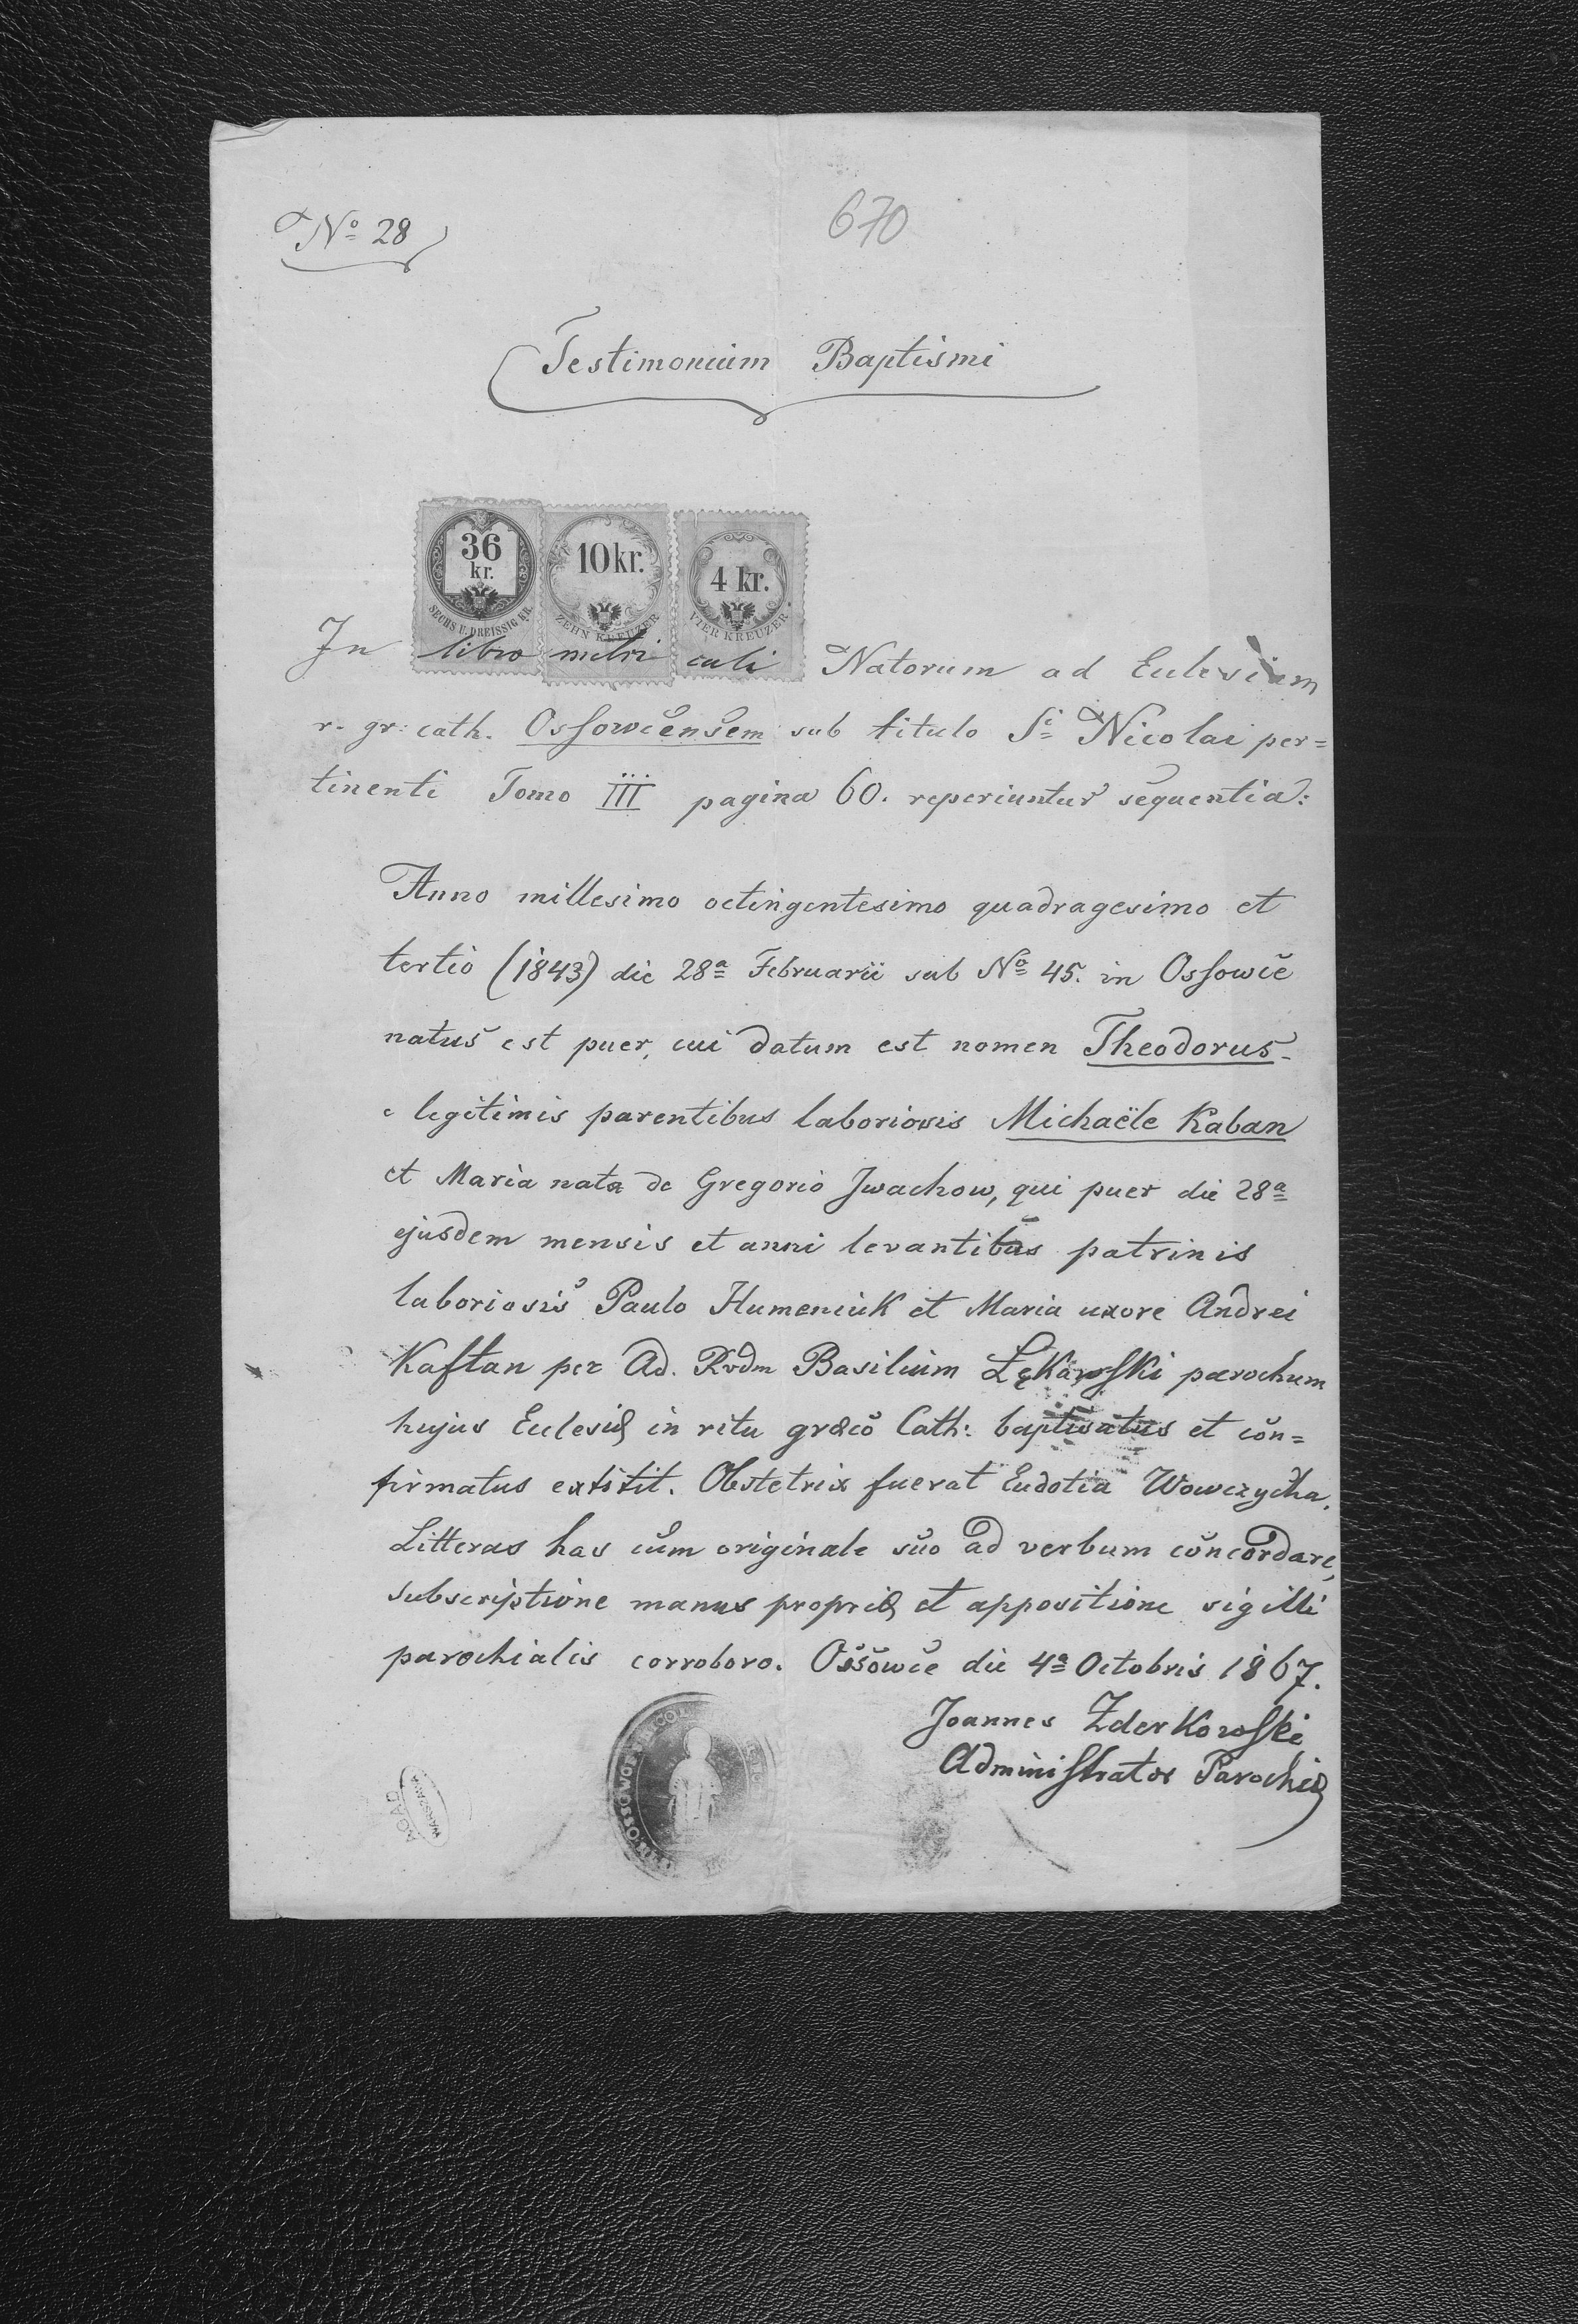 Nº 28
670
Testimonium Baptismi
36 kr.
SECHS U. DREISSIG KR.
10 kr.
ZEHN KREUZER
4 kr.
VIER KREUZER
In libro metri culi Natorum ad Eclesiam
r. gr: cath. Ossowcensem sub titulo Sⁱ Nicolai per=
tinenti Tomo III pagina 60. reperiuntur sequentia:
Anno millesimo octingentesimo quadragesimo et
tertio (1843) die 28ª Februarii sub Nº 45. in Ossowce
natus est puer, cui datum est nomen Theodorus
e legitimis parentibus laboriosis Michaële Kaban
et Maria nata de Gregorio Iwachow, qui puer die 28ª
ejusdem mensis et anni levantibus patrinis
laboriosis Paulo Humeniuk et Maria uxore Andrei
Kaftan per Ad. Rvdm Basilium Łękawski parochum
hujus Eclesiæ in ritu græco Cath: baptisatus et con=
firmatus extitit. Obstetrix fuerat Eudotia Wowczycha.
Litteras has cum originale suo ad verbum concordare,
subscriptione manus propriæ et appositione sigilli
parochialis corroboro. Ossowce die 4ª Octobris 1867.
Joannes Zderkowski
Administrator Parochiæ
AGAD
WARSZAWA